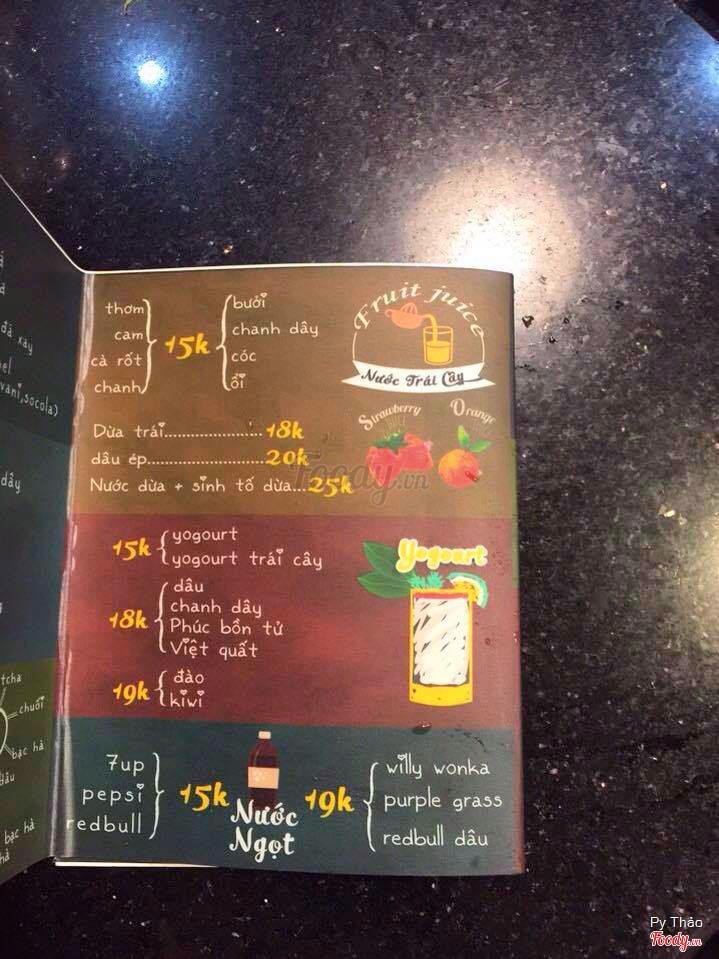 đá xay
vani,socola)
dây
tcha
chuối
bạc hà
dâu
bạc hà
Fruit juice
Nước Trái Cây
thơm
cam
cà rốt
chanh
15k
bưởi
chanh dây
cóc
ổi
Strawberry
JUICE
Orange
Dừa trái......................18k
dâu ép......................20k
Nước dừa + sinh tố dừa...25k
Foody.vn
Yogourt
15k
yogourt
yogourt trái cây
18k
dâu
chanh dây
Phúc bồn tử
Việt quất
19k
đào
kiwi
7up
pepsi
redbull
15k
Nước
Ngọt
19k
willy wonka
purple grass
redbull dâu
Py Thảo
Foody.vn